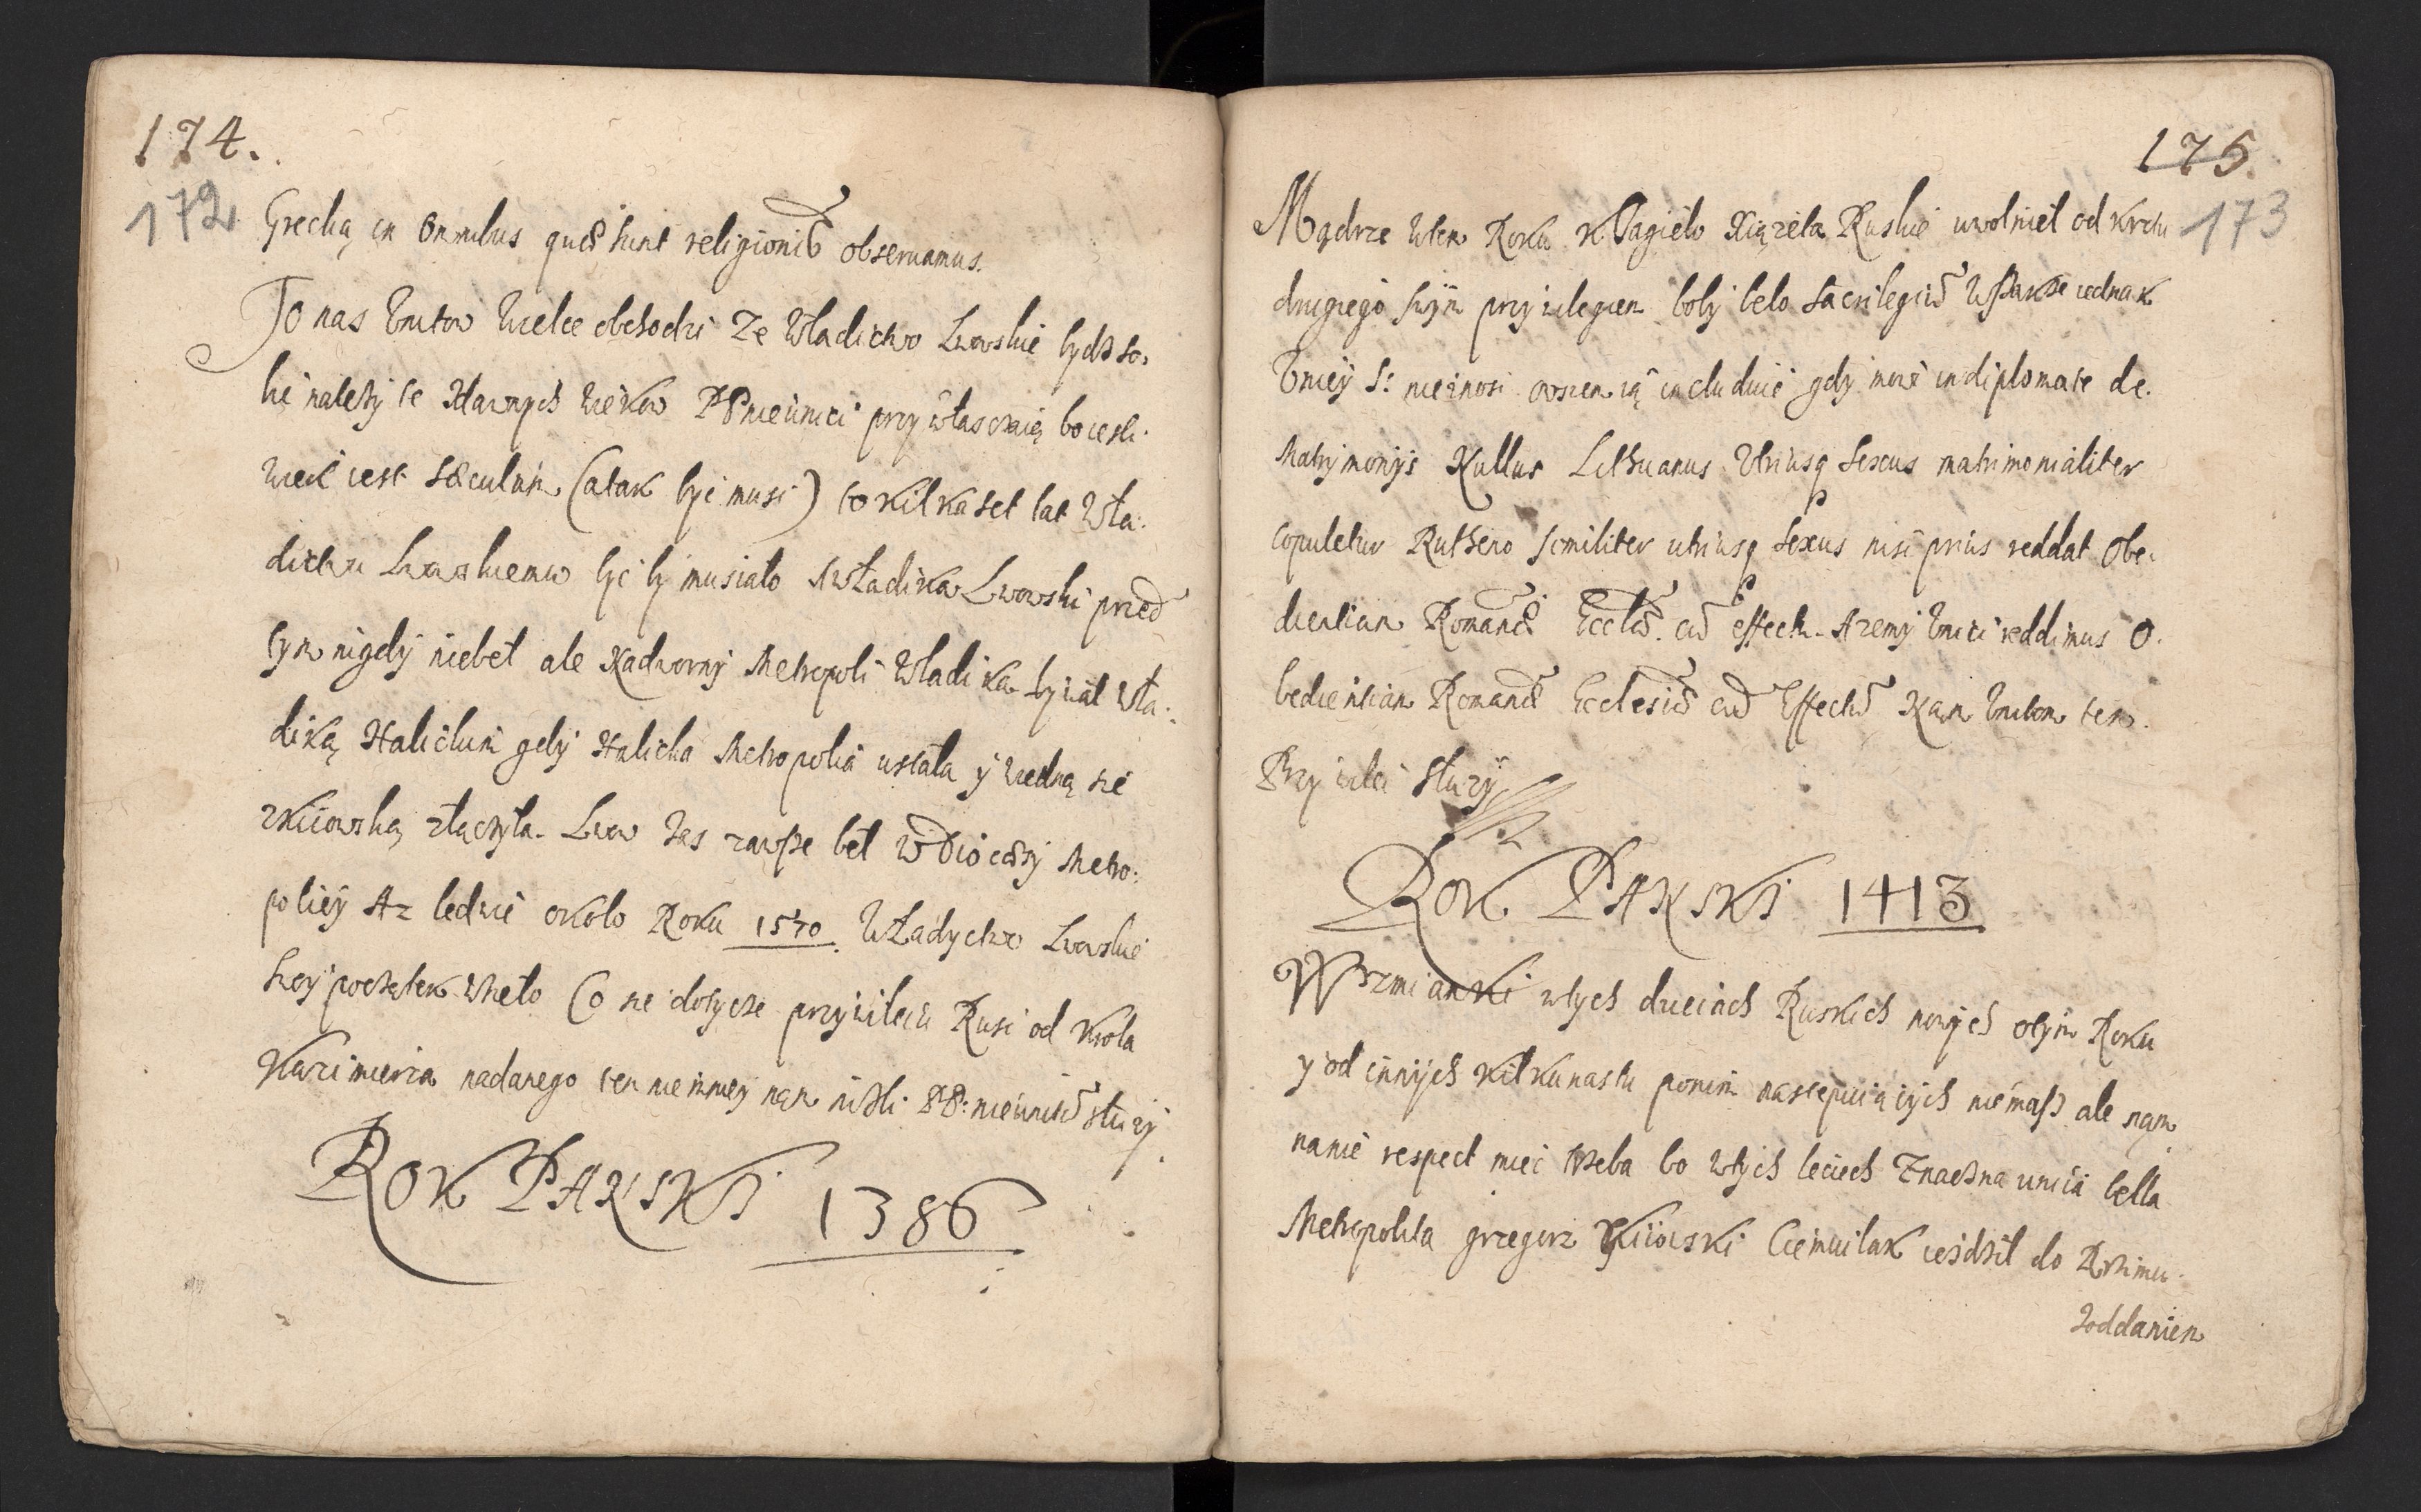 174.
172
Grecką in Omnibus quæ sunt religionis observamus.
To nas Unitow wielce obchodzi Ze Władictwo Lwowskie
należy te Dawnych wiekow PP nieunici przywłasczaią bo iesli
wiek iest sæculum (a tak byc musi) to kilka set lat Wła-
dictwu Lwowskiemu byc by musiało A Władika Lwowski przed
tym nigdy niebeł ale Nadworny Metropoli Władika bywał Wła-
diką Halickim gdy Halicka Metropolia ustała y wiedną sie
zKiiowską złączyła. Lwow zas zawsze beł w Diocæzy Metro-
poliey Az ledwie około Roku 1570 Władyctwo Lwowskie
swoy początek wzieło Co sie dotycze przywileiu Rusi od Krola
Kazimierza nadanego ten niemniey nąm niżli PP: nieunitom słuzy.
ROK PANSKI 1386
175.
173
Mądrze wten Roku K Jagieło Xiązeta Ruskie uwolnieł od krztu
drugiego swym przywilegiem boby beło Sacrilegium Wszakże iednak
Uniey S: nieznosi owszem ią includuie gdy mowi in diplomate de
Matrymonijs Nullus Lithuanus Utriusq Sexus matrimonialiter
copuletur Rutheno similiter utriusq Sexus nisi prius reddat Obe-
dientiam Romanæ Ecclæ. cum effectu. A zemy Unici reddimus O-
bedientiam Romanæ Ecclesiæ cum Effectu Nąm Unitom ten
Przywilei słuzy
ROK PANSKI 1413
Wzmianki wtych dzieiach Ruskich nowych otym Roku
y od innych kilkunastu ponim nastepuiących niemasz ale nąm
nanie respect miec trzeba bo wtych leciech Znaczna unia bełła
Metropolita grzegorz Kiiowski Cemiwlak ieździł do Rzimu
Zoddaniem